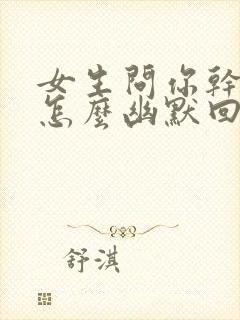 女生問你幹
怎麼幽默回
舒淇